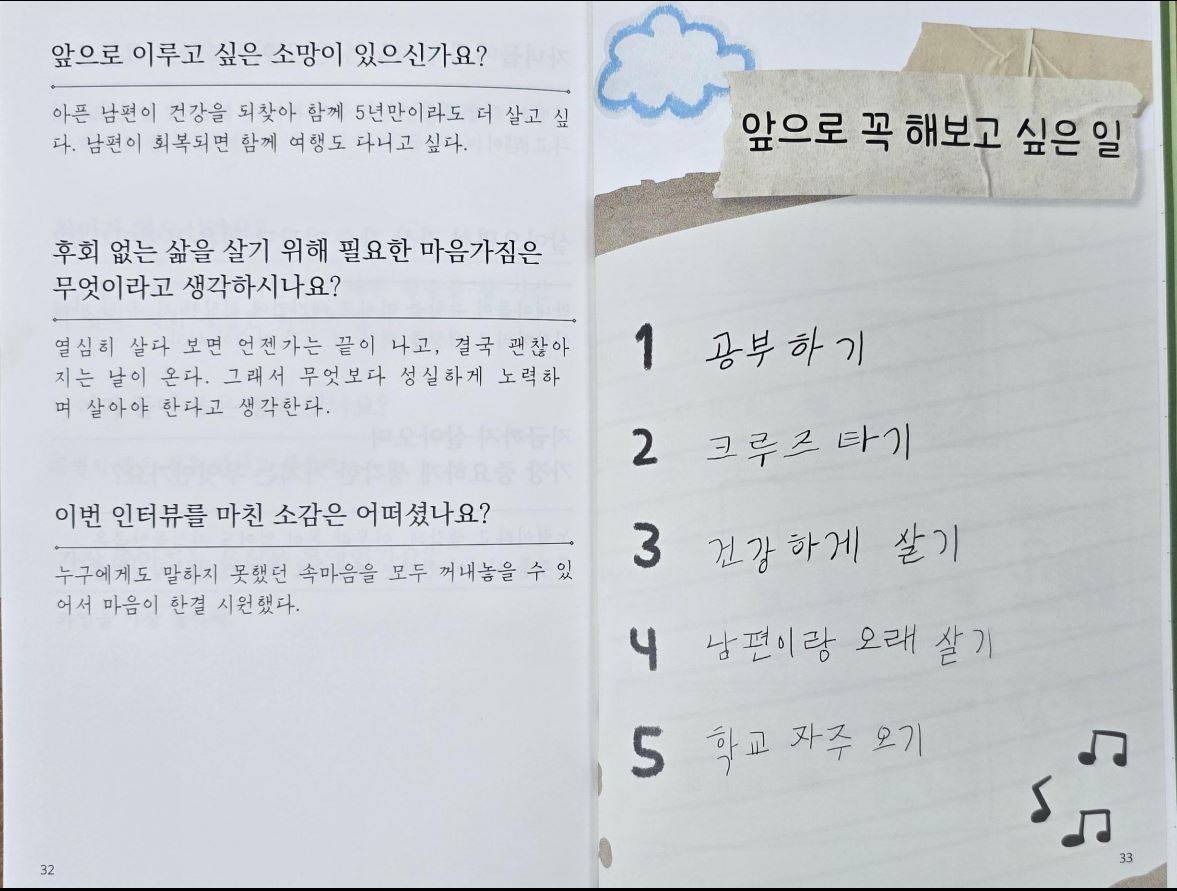 앞으로 이루고 싶은 소망이 있으신가요?
아픈 남편이 건강을 되찾아 함께 5년만이라도 더 살고 싶
다. 남편이 회복되면 함께 여행도 다니고 싶다.
후회 없는 삶을 살기 위해 필요한 마음가짐은
무엇이라고 생각하시나요?
열심히 살다 보면 언젠가는 끝이 나고, 결국 괜찮아
지는 날이 온다. 그래서 무엇보다 성실하게 노력하
며 살아야 한다고 생각한다.
이번 인터뷰를 마친 소감은 어떠셨나요?
누구에게도 말하지 못했던 속마음을 모두 꺼내놓을 수 있
어서 마음이 한결 시원했다.
32
앞으로 꼭 해보고 싶은 일
1 공부하기
2 크루즈 타기
3 건강하게 살기
4 남편이랑 오래 살기
5 학교 자주 오기
33